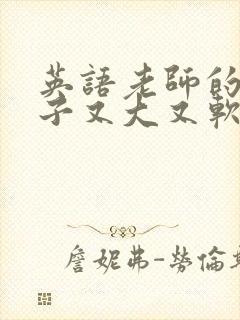 英語老師的
子又大又軟
詹妮弗-勞倫